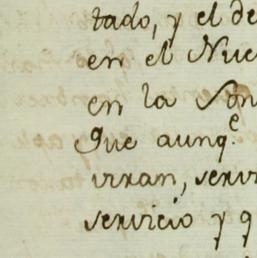 tado, y el de
en el Nue
en la Son
Que aunq.e
irran, servi
servicio y q